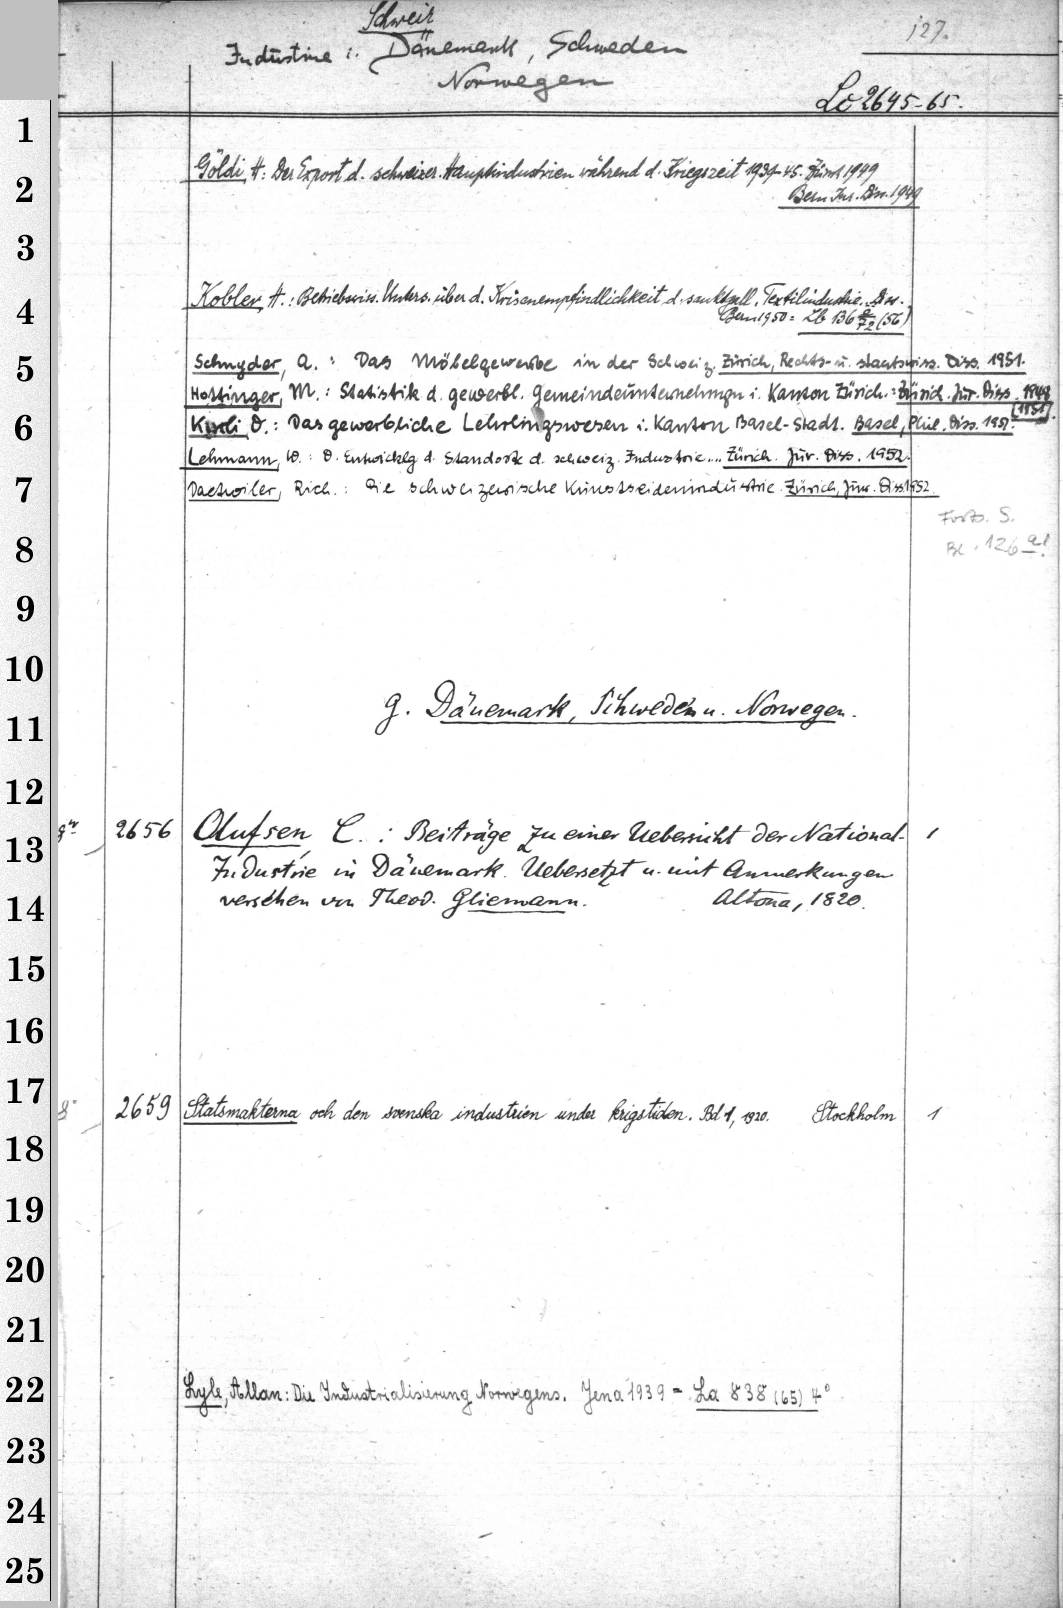 Schweiz
Industrie i. Dänemark, Schweden
Norwegen
127.
Lo 2645-65.
1
Göldi, H: Der Export d. schweizer. Hauptindustrien während d. Kriegszeit 1939-45. Zürich 1949
2
Bern Jur. Diss. 1949
3
Kobler, A.: Betriebswiss. Unters. über d. Krisenempfindlichkeit d. sanktgall. Textilindustrie. Diss.
4
Bern 1950 = Zb 136 (56)
5
Schnyder, A.: Das Möbelgewerbe in der Schweiz. Zürich, Rechts- u. staatswiss. Diss. 1951.
Hottinger, M.: Statistik d. gewerbl. Gemeindeunternehmgn i. Kanton Zürich.: Zürich. Jur. Diss. 1948
(1951).
6
O.: Das gewerbliche Lehrlingswesen i. Kanton Basel-Stadt. Basel, Phil. Diss. 1951.
Lehmann, W.: D. Entwicklg d. Standorte d. schweiz. Industrie... Zürich. Jur. Diss. 1952.
7
Daetwiler, Rich.: Die schweizerische Kunstseidenindustrie. Zürich, Jur. Diss 1952
Forts. S.
8
Bl. 126 a!
9
10
g. Dänemark, Schweden u. Norwegen.
11
12
8° 2656 Olufsen, C.: Beiträge zu einer Uebersicht der National- 1
13
Industrie in Dänemark. Uebersetzt u. mit Anmerkungen
14
versehen von Theod. Gliemann. Altona, 1820.
15
16
17
8° 2659 Statsmakterna och den svenska industrien under krigstiden. Bd 1, 1920. Stockholm 1
18
19
20
21
22
Lyle, Allan: Die Industrialisierung Norwegens. Jena 1939 = La 838 (65) 4°
23
24
25